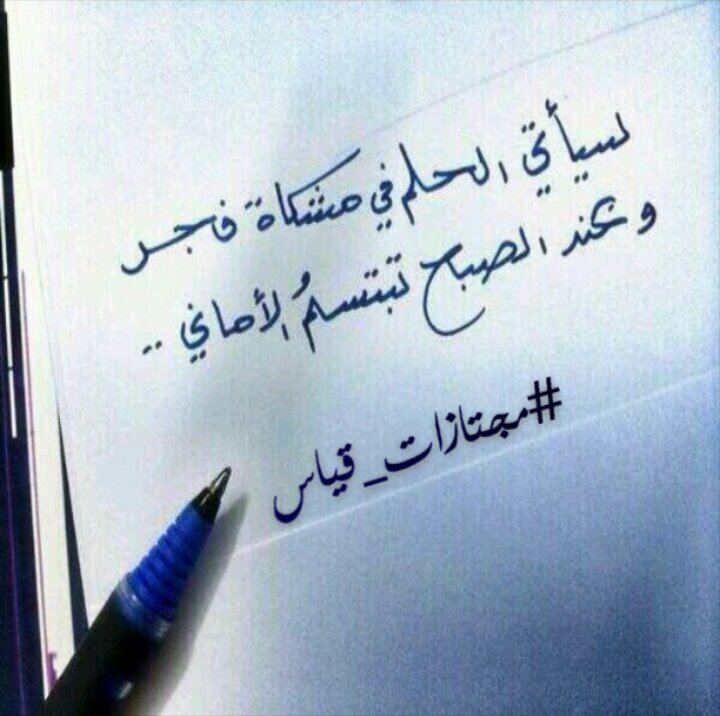 سيأتي الحلم في مشكاة فجر
وعند الصباح تبتسمُ الأماني ..
#مجتازات_قياس